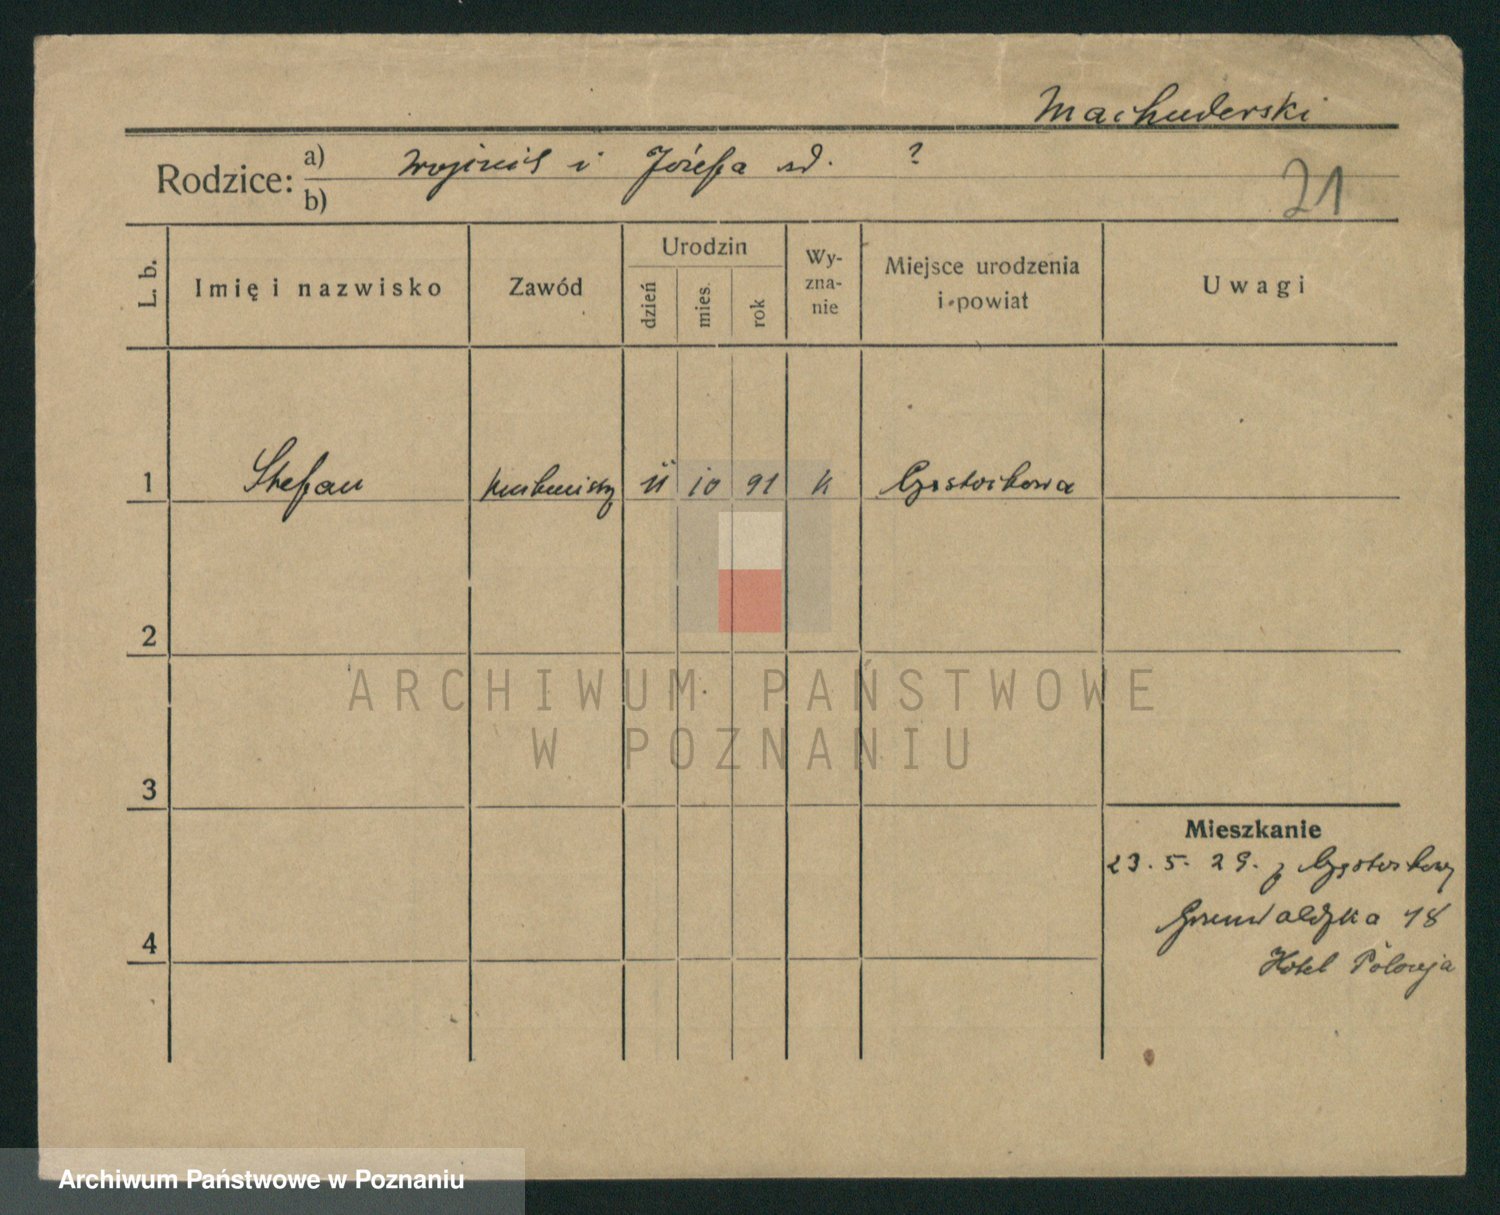 Machuderski
Rodzice: a) Wojciech i Józefa nd. ?
b)
21
L. b.
Imię i nazwisko
Zawód
Urodzin
dzień
mies.
rok
Wy-
zna-
nie
Miejsce urodzenia
i powiat
Uwagi
1 Stefan 11 10 91 k Częstochowa
2
3
4
Mieszkanie
23. 5. 29. z Częstochowy
Grunwaldzka 18
Hotel Polonja
ARCHIWUM PAŃSTWOWE
W POZNANIU
Archiwum Państwowe w Poznaniu